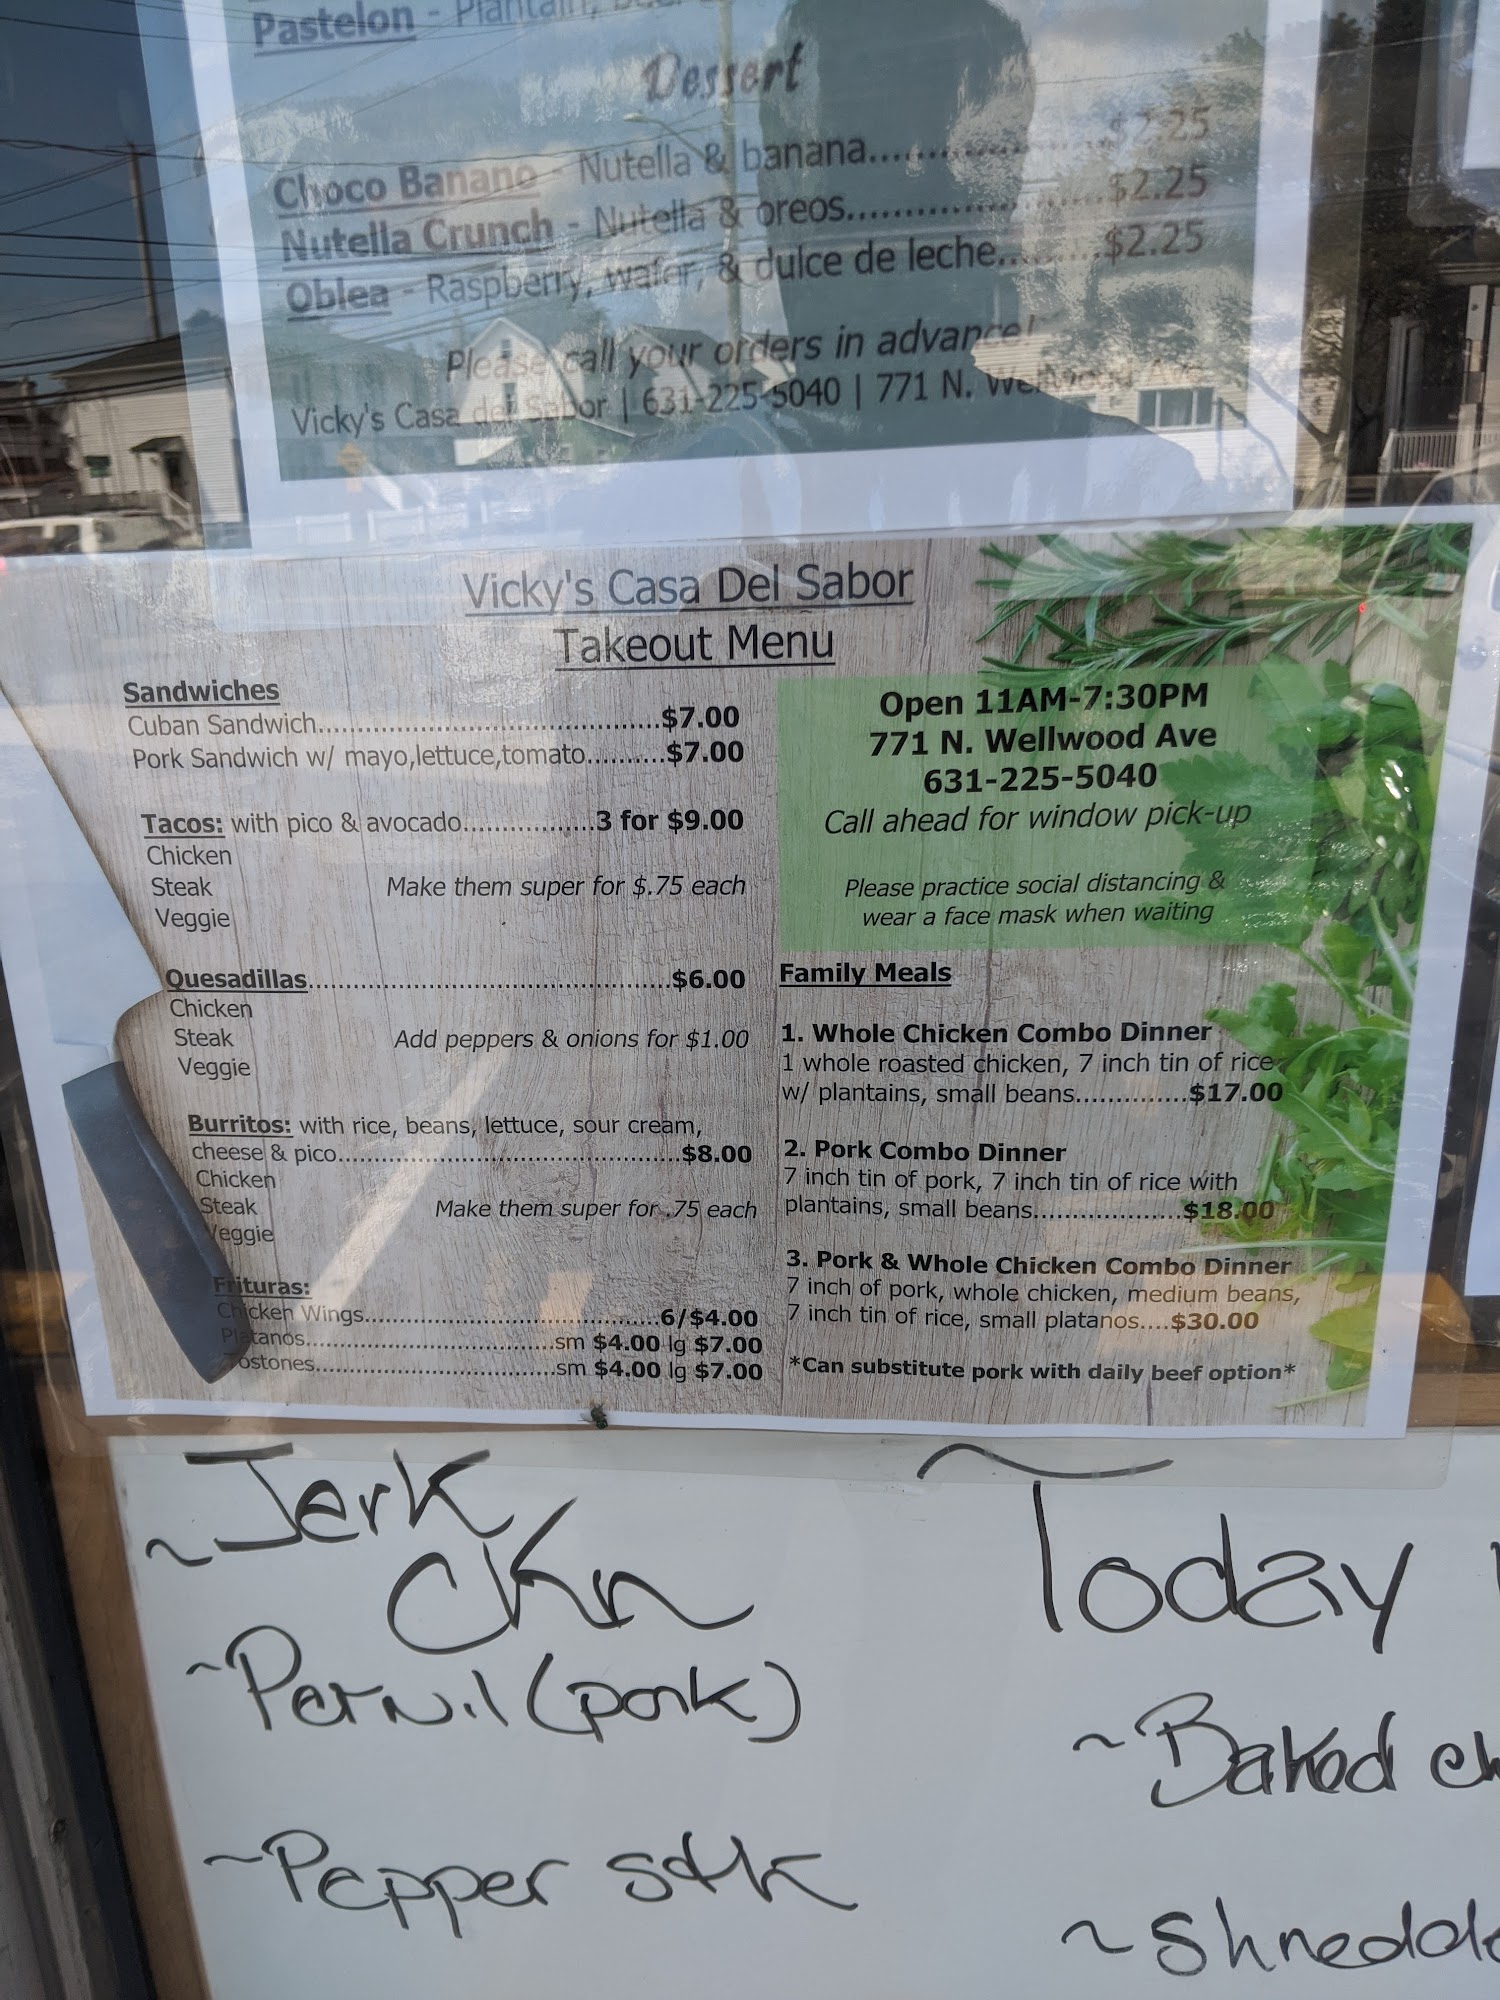 Pastelon - Plantain,
Dessert
Choco Banano - Nutella & banana..................... $2.25
Nutella Crunch - Nutella & oreos........................$2.25
Oblea - Raspberry, wafer, & dulce de leche..........$2.25
Please call your orders in advance!
Vicky's Casa del Sabor | 631-225-5040 | 771 N. Wellwood Ave
Vicky's Casa Del Sabor
Takeout Menu
Sandwiches
Cuban Sandwich..........................................$7.00
Pork Sandwich w/ mayo,lettuce,tomato..........$7.00
Tacos: with pico & avocado.................3 for $9.00
Chicken
Steak Make them super for $.75 each
Veggie
Quesadillas..............................................$6.00
Chicken
Steak Add peppers & onions for $1.00
Veggie
Burritos: with rice, beans, lettuce, sour cream,
cheese & pico............................................$8.00
Chicken
Steak Make them super for .75 each
Veggie
Frituras:
Chicken Wings......................................6/$4.00
Platanos................................sm $4.00 lg $7.00
Tostones...............................sm $4.00 lg $7.00
Open 11AM-7:30PM
771 N. Wellwood Ave
631-225-5040
Call ahead for window pick-up
Please practice social distancing &
wear a face mask when waiting
Family Meals
1. Whole Chicken Combo Dinner
1 whole roasted chicken, 7 inch tin of rice
w/ plantains, small beans..............$17.00
2. Pork Combo Dinner
7 inch tin of pork, 7 inch tin of rice with
plantains, small beans...................$18.00
3. Pork & Whole Chicken Combo Dinner
7 inch of pork, whole chicken, medium beans,
7 inch tin of rice, small platanos....$30.00
*Can substitute pork with daily beef option*
~Jerk
CKn
~Pernil (pork)
~Pepper stk
Today
~Baked
~Shredde